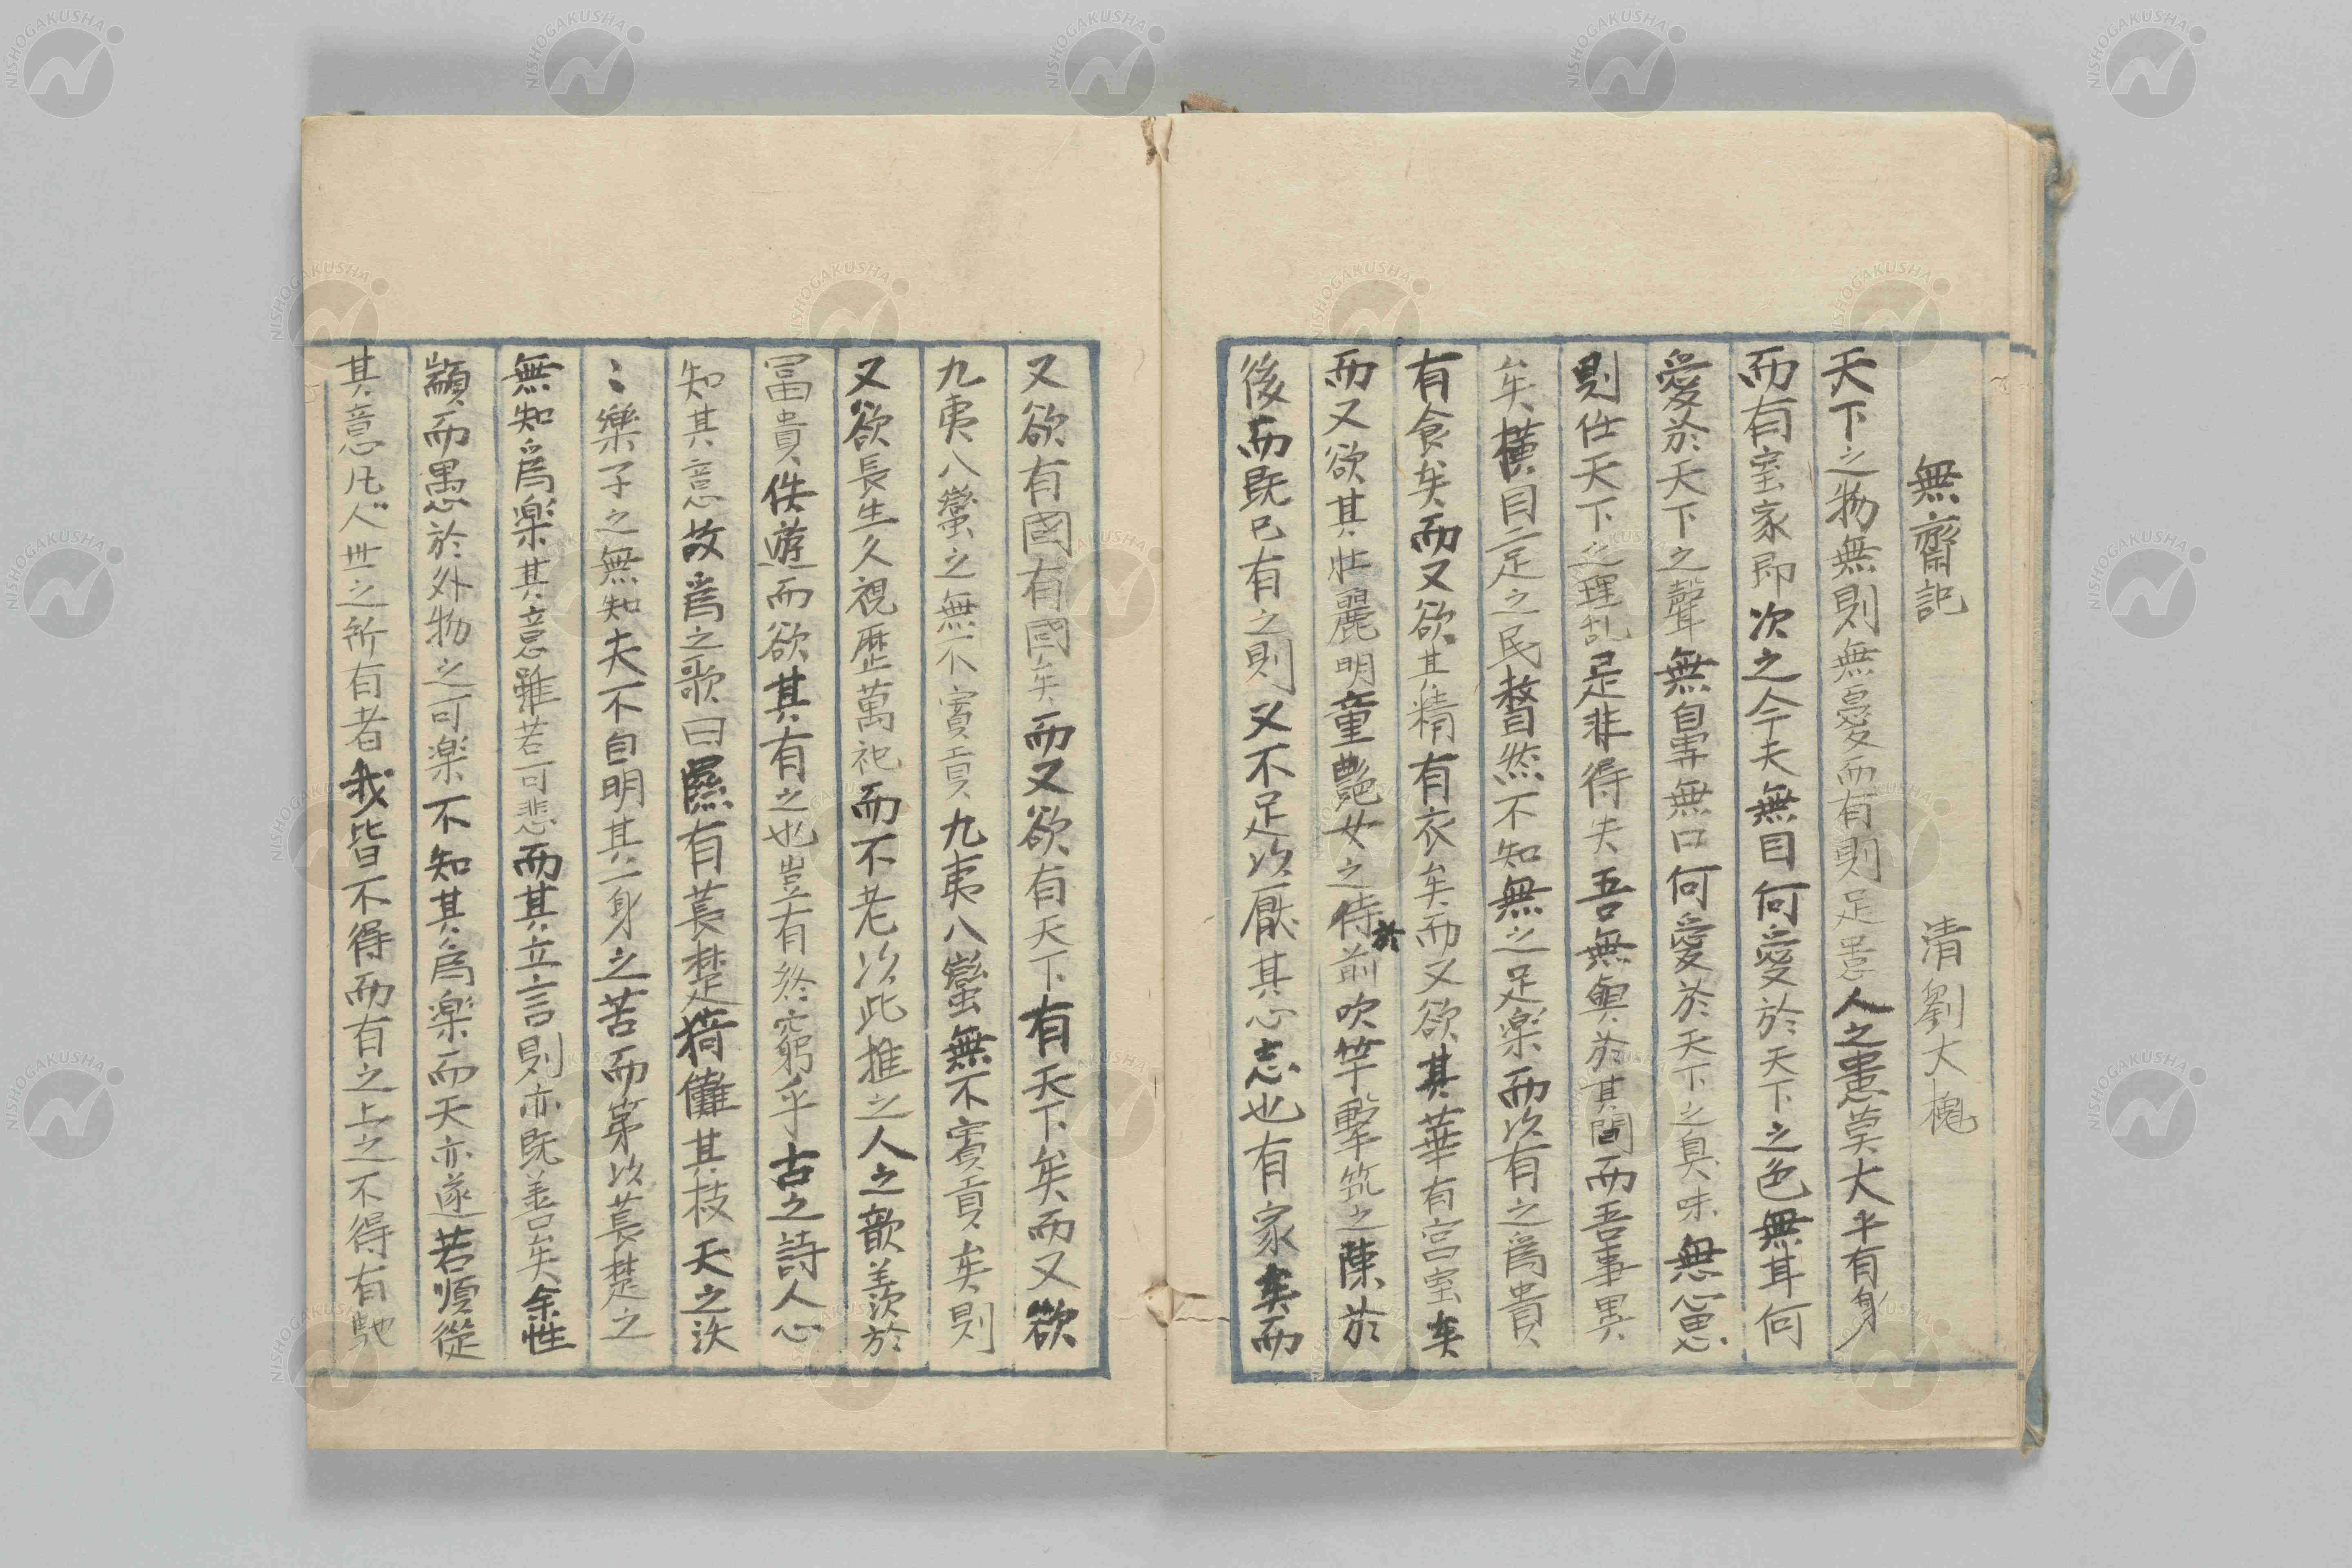 無齋記
清劉大櫆
天下之物無則無憂而有則足患人之患莫大乎有身
而有室家即次之今夫無目何愛於天下之色無耳何
愛於天下之聲無鼻無口何愛於天下之臭味無心思
則仕天下之理乱是非得失吾無與於其間而吾事畢
矣横目二足之民瞀然不知無之足楽而以有之爲貴
有食矣而又欲其精有衣矣而又欲其華有宮室矣
而又欲其壮麗明童艶女之侍於前吹竽擊筑之陳於
後而既已有之則又不足以厭其心志也有家矣而
又欲有國有國矣而又欲有天下有天下矣而又欲
九夷八蠻之無不賓貢九夷八蠻無不賓貢矣則
又欲長生久視歴萬祀而不老以此推之人之歆羨於
冨貴佚遊而欲其有之也豈有終窮乎古之詩人心
知其意故爲之歌曰隰有萇楚猗儺其枝夭之沃
〻樂子之無知夫不自明其一身之苦而第以萇楚之
無知爲楽其意雖若可悲而其立言則亦既善矣余性
顓而愚於外物之可楽不知其爲楽而天亦遂若順從
其意凡人世之所有者我皆不得而有之上之不得有馳